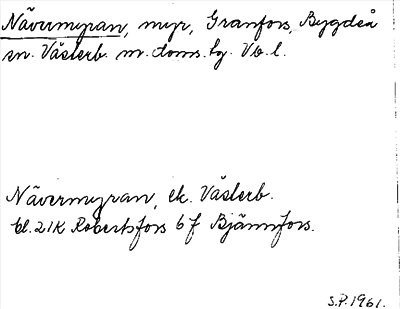 Nävermyran, myr, Granfors, Bygdeå
sn. Västerb. m. doms.hg. Vb. l.
Nävermyran, ek. Västerb.
bl. 21K Robertsfors 6 f Bjännfors.
S.P. 1961.